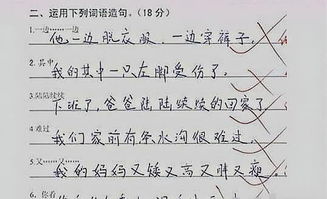 二、运用下列词语造句。(18分)
1.一边……一边
他一边脱衣服，一边穿裤子。
2.其中
我的其中一只左脚受伤了。
3.陆陆续续
下班了，爸爸陆陆续续的回家了
4 难过
我们家前有条水沟很难过。
5.又……又……
我的妈妈又矮又高又胖又瘦。
6.你看